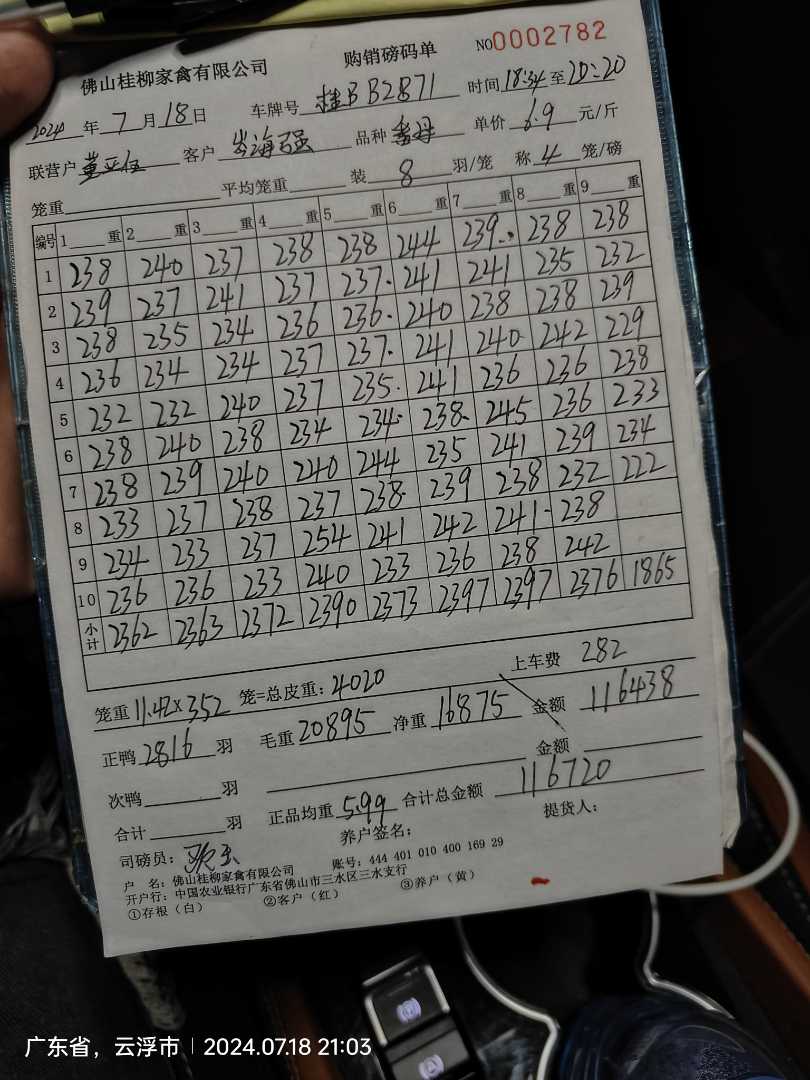 佛山桂柳家禽有限公司 购销磅码单 NO0002782
2024年7月18日 车牌号 桂BB2871 时间18:34至20:20
联营户 客户 品种 单价6.9元/斤
笼重 平均笼重 装8羽/笼 称4笼/磅
编号 1 重 2 重 3 重 4 重 5 重 6 重 7 重 8 重 9 重
1 238 240 237 238 238 244 239 238 238
2 239 237 241 237 237 241 241 235 232
3 238 235 234 236 236 240 238 238 239
4 236 234 234 237 237 241 240 242 229
5 232 232 240 237 235 241 236 236 238
6 238 240 238 234 234 238 245 236 233
7 238 239 240 240 244 235 241 239 234
8 233 237 238 237 238 239 238 232 222
9 234 233 237 254 241 242 241 238
10 236 236 233 240 233 236 238 242
小计 2362 2363 2372 2390 2373 2397 2397 2376 1865
笼重11.42×352 笼=总皮重:4020 上车费 282
正鸭2816羽 毛重20895 净重16875 金额116438
次鸭 羽 金额
合计 羽 正品均重5.99 合计总金额116720
司磅员: 养户签名: 提货人:
户 名:佛山桂柳家禽有限公司 账号:444 401 010 400 169 29
开户行:中国农业银行广东省佛山市三水区三水支行
①存根(白) ②客户(红) ③养户(黄)
广东省,云浮市 | 2024.07.18 21:03